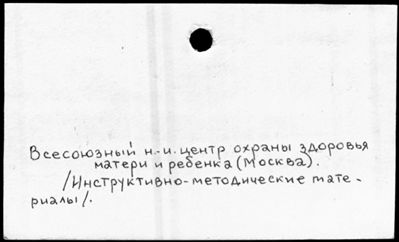 Всесоюзный н.-и. центр охраны здоровья
матери и ребенка (Москва).
/Инструктивно-методические мате-
риалы/.